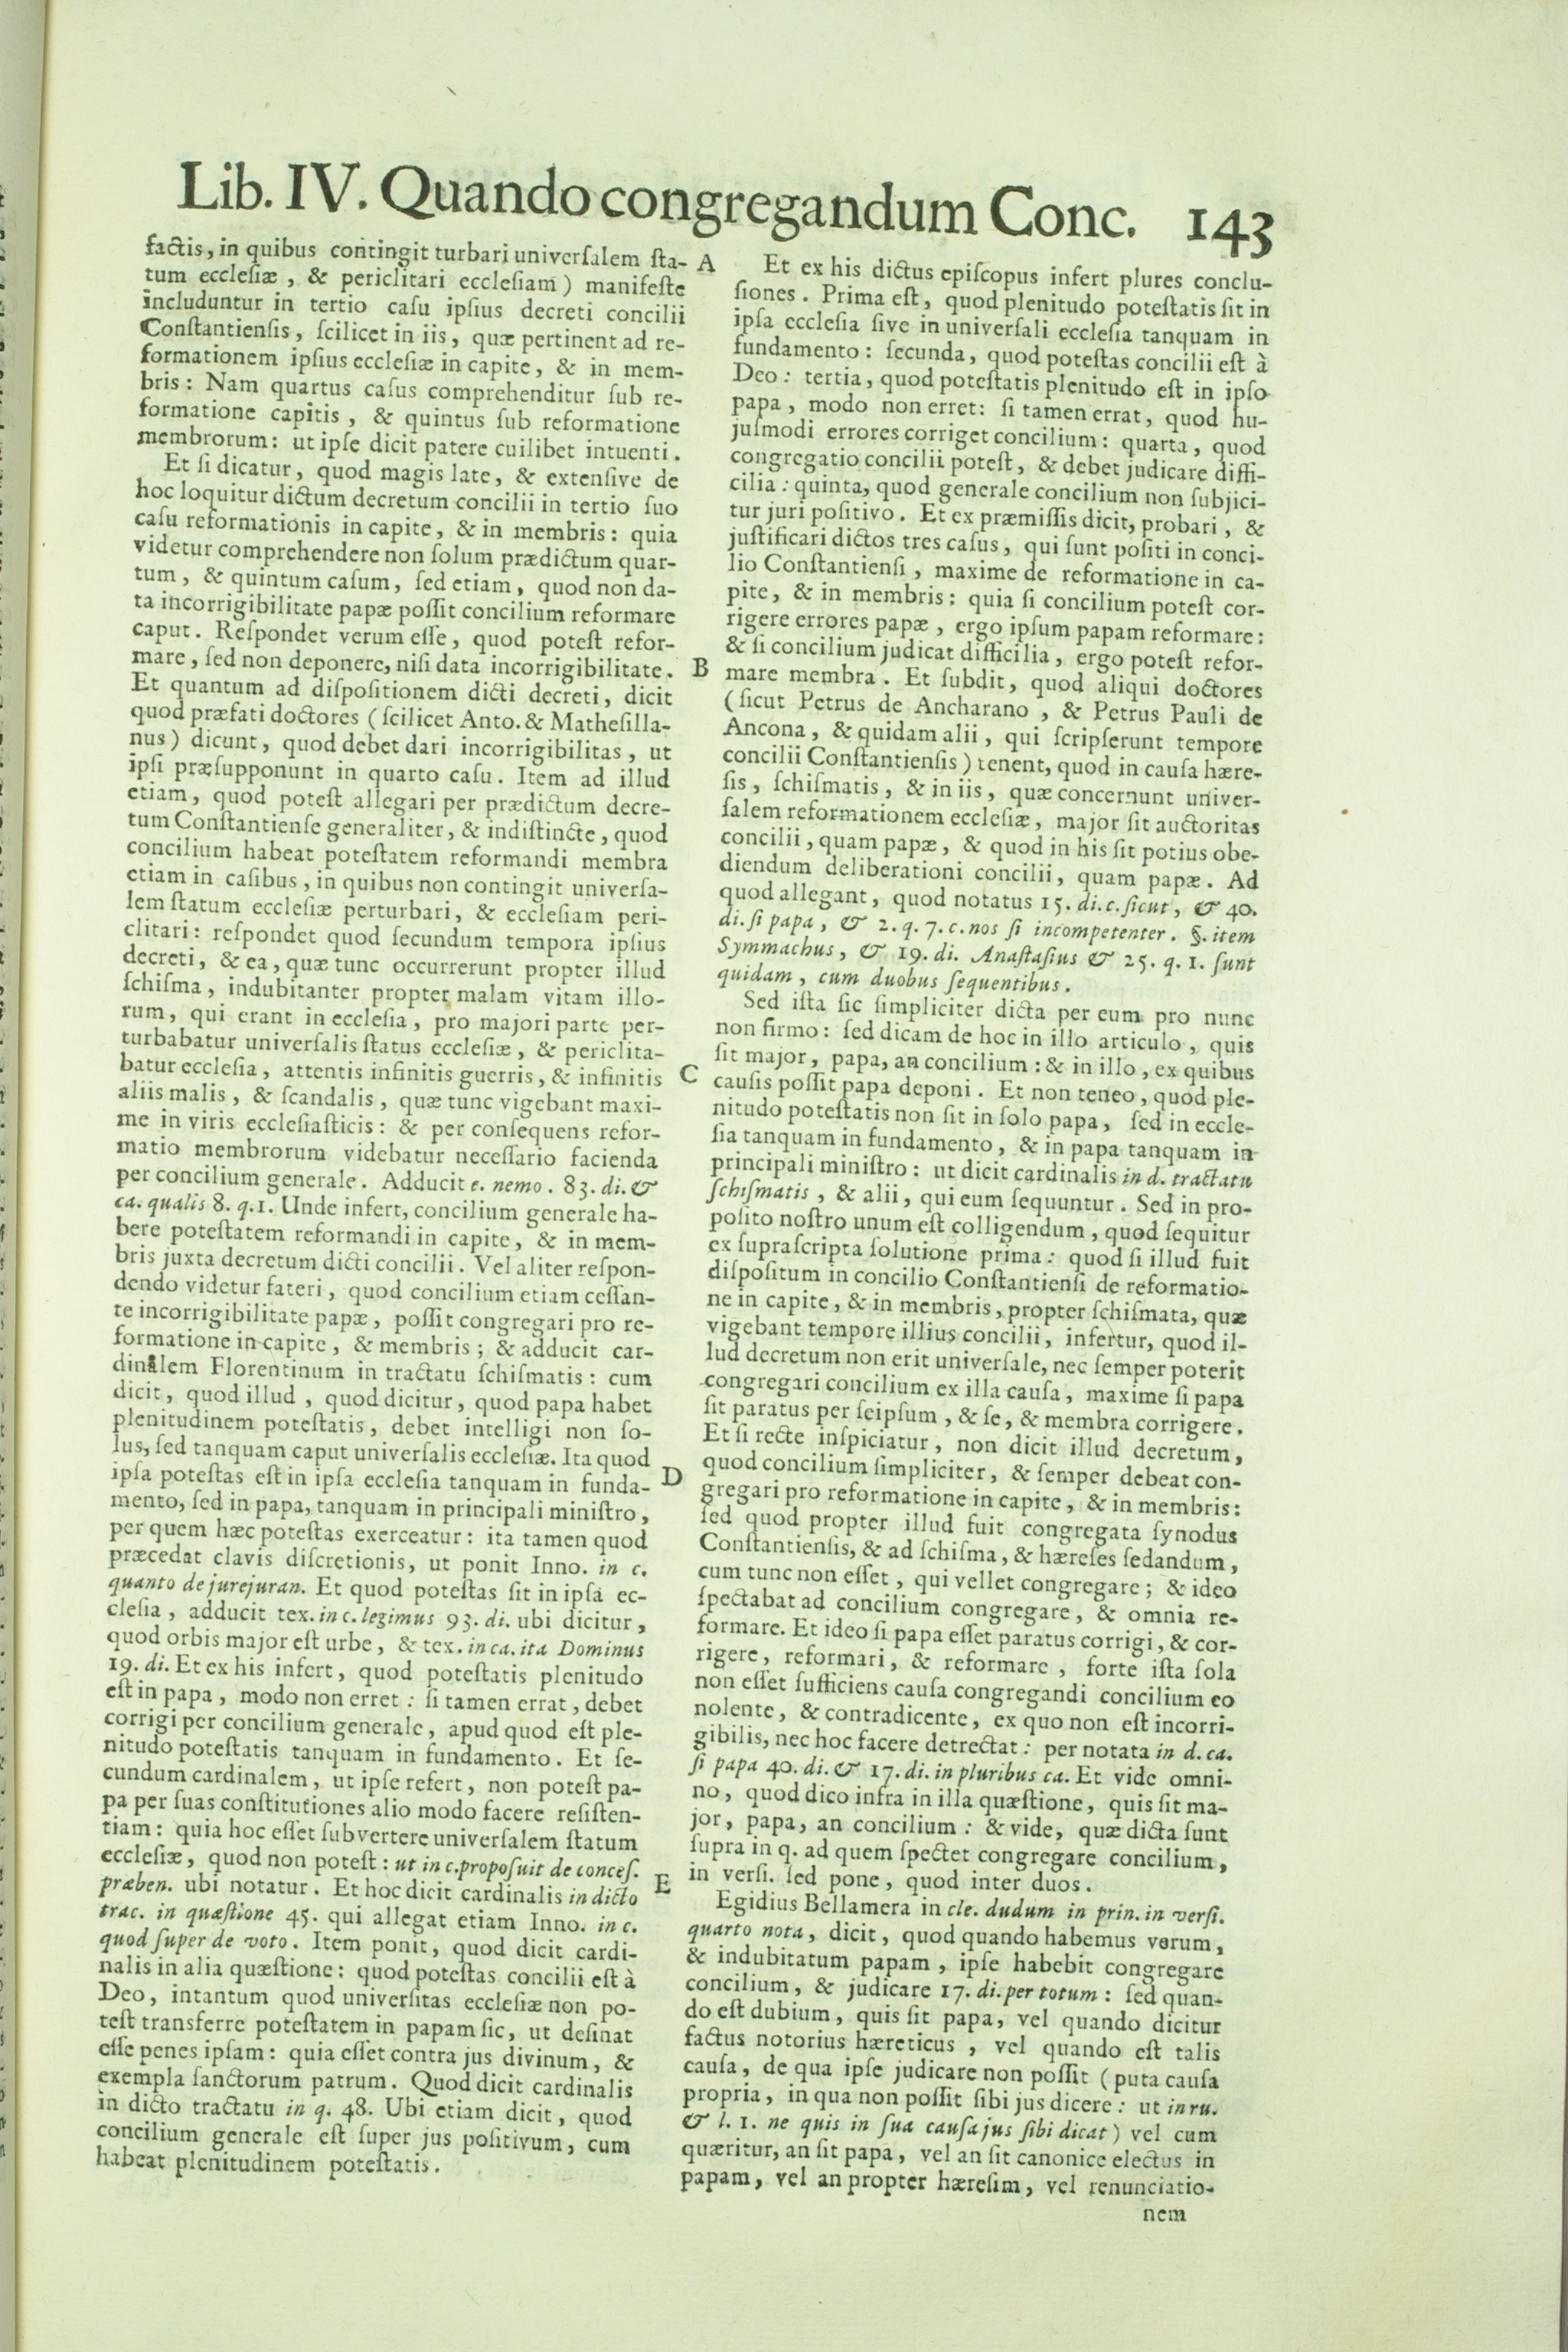 Lib. IV. Quando congregandum Conc. 143
factis, in quibus contingit turbari universalem sta-
tum ecclesiæ, & periclitari ecclesiam) manifeste
includuntur in tertio casu ipsius decreti concilii
Constantiensis, scilicet in iis, quæ pertinent ad re-
formationem ipsius ecclesiæ in capite, & in mem-
bris: Nam quartus casus comprehenditur sub re-
formatione capitis, & quintus sub reformatione
membrorum: ut ipse dicit patere cuilibet intuenti.
Et si dicatur, quod magis late, & extensive de
hoc loquitur dictum decretum concilii in tertio suo
casu reformationis in capite, & in membris: quia
videtur comprehendere non solum prædictum quar-
tum, & quintum casum, sed etiam, quod non da-
ta incorrigibilitate papæ possit concilium reformare
caput. Respondet verum esse, quod potest refor-
mare, sed non deponere, nisi data incorrigibilitate.
Et quantum ad dispositionem dicti decreti, dicit
quod præfati doctores (scilicet Anto. & Mathesilla-
nus) dicunt, quod debet dari incorrigibilitas, ut
ipsi præsupponunt in quarto casu. Item ad illud
etiam, quod potest allegari per prædictum decre-
tum Constantiense generaliter, & indistincte, quod
concilium habeat potestatem reformandi membra
etiam in casibus, in quibus non contingit universa-
lem statum ecclesiæ perturbari, & ecclesiam peri-
clitari: respondet quod secundum tempora ipsius
decreti, & ea, quæ tunc occurrerunt propter illud
schisma, indubitanter propter malam vitam illo-
rum, qui erant in ecclesia, pro majori parte per-
turbabatur universalis status ecclesiæ, & periclita-
batur ecclesia, attentis infinitis guerris, & infinitis
aliis malis, & scandalis, quæ tunc vigebant maxi-
me in viris ecclesiasticis: & per consequens refor-
matio membrorum videbatur necessario facienda
per concilium generale. Adducit c. nemo. 83. di. &
ca. qualis 8. q.1. Unde infert, concilium generale ha-
bere potestatem reformandi in capite, & in mem-
bris juxta decretum dicti concilii. Vel aliter respon-
dendo videtur fateri, quod concilium etiam cessan-
te incorrigibilitate papæ, possit congregari pro re-
formatione in capite, & membris; & adducit car-
dinalem Florentinum in tractatu schismatis: cum
dicit, quod illud, quod dicitur, quod papa habet
plenitudinem potestatis, debet intelligi non so-
lus, sed tanquam caput universalis ecclesiæ. Ita quod
ipsa potestas est in ipsa ecclesia tanquam in funda-
mento, sed in papa, tanquam in principali ministro,
per quem hæc potestas exerceatur: ita tamen quod
præcedat clavis discretionis, ut ponit Inno. in c.
quanto de jurejuran. Et quod potestas sit in ipsa ec-
clesia, adducit tex. in c. legimus 93. di. ubi dicitur,
quod orbis major est urbe, & tex. in ca. ita Dominus
19. di. Et ex his infert, quod potestatis plenitudo
est in papa, modo non erret: si tamen errat, debet
corrigi per concilium generale, apud quod est ple-
nitudo potestatis tanquam in fundamento. Et se-
cundum cardinalem, ut ipse refert, non potest pa-
pa per suas constitutiones alio modo facere resisten-
tiam: quia hoc esset subvertere universalem statum
ecclesiæ, quod non potest: ut in c. proposuit de conces.
præben. ubi notatur. Et hoc dicit cardinalis in dicto
trac. in quæstione 45. qui allegat etiam Inno. in c.
quod super de voto. Item ponit, quod dicit cardi-
nalis in alia quæstione: quod potestas concilii est à
Deo, intantum quod universitas ecclesiæ non po-
test transferre potestatem in papam sic, ut desinat
esse penes ipsam: quia esset contra jus divinum, &
exempla sanctorum patrum. Quod dicit cardinalis
in dicto tractatu in q. 48. Ubi etiam dicit, quod
concilium generale est super jus positivum, cum
habeat plenitudinem potestatis.
A
B
C
D
E
Et ex his dictus episcopus infert plures conclu-
siones. Prima est, quod plenitudo potestatis sit in
ipsa ecclesia sive in universali ecclesia tanquam in
fundamento: secunda, quod potestas concilii est à
Deo: tertia, quod potestatis plenitudo est in ipso
papa, modo non erret: si tamen errat, quod hu-
jusmodi errores corriget concilium: quarta, quod
congregatio concilii potest, & debet judicare diffi-
cilia: quinta, quod generale concilium non subjici-
tur juri positivo. Et ex præmissis dicit, probari, &
justificari dictos tres casus, qui sunt positi in conci-
lio Constantiensi, maxime de reformatione in ca-
pite, & in membris: quia si concilium potest cor-
rigere errores papæ, ergo ipsum papam reformare:
& si concilium judicat difficilia, ergo potest refor-
mare membra. Et subdit, quod aliqui doctores
(sicut Petrus de Ancharano, & Petrus Pauli de
Ancona, & quidam alii, qui scripserunt tempore
concilii Constantiensis) tenent, quod in causa hære-
sis, schismatis, & in iis, quæ concernunt univer-
salem reformationem ecclesiæ, major sit auctoritas
concilii, quam papæ, & quod in his sit potius obe-
diendum deliberationi concilii, quam papæ. Ad
quod allegant, quod notatus 15. di. c. sicut, & 40.
di. si papa, & 2. q. 7. c. nos si incompetenter. §. item
Symmachus, & 19. di. Anastasius & 25. q. 1. sunt
quidam, cum duobus sequentibus.
Sed ista sic simpliciter dicta per eum pro nunc
non firmo: sed dicam de hoc in illo articulo, quis
sit major, papa, an concilium: & in illo, ex quibus
causis possit papa deponi. Et non teneo, quod ple-
nitudo potestatis non sit in solo papa, sed in eccle-
sia tanquam in fundamento, & in papa tanquam in
principali ministro: ut dicit cardinalis in d. tractatu
schismatis, & alii, qui eum sequuntur. Sed in pro-
posito nostro unum est colligendum, quod sequitur
ex suprascripta solutione prima: quod si illud fuit
dispositum in concilio Constantiensi de reformatio-
ne in capite, & in membris, propter schismata, quæ
vigebant tempore illius concilii, infertur, quod il-
lud decretum non erit universale, nec semper poterit
congregari concilium ex illa causa, maxime si papa
sit paratus per seipsum, & se, & membra corrigere.
Et si recte inspiciatur, non dicit illud decretum,
quod concilium simpliciter, & semper debeat con-
gregari pro reformatione in capite, & in membris:
sed quod propter illud fuit congregata synodus
Constantiensis, & ad schisma, & hæreses sedandum,
cum tunc non esset, qui vellet congregare; & ideo
spectabat ad concilium congregare, & omnia re-
formare. Et ideo si papa esset paratus corrigi, & cor-
rigere, reformari, & reformare, forte ista sola
non esset sufficiens causa congregandi concilium eo
nolente, & contradicente, ex quo non est incorri-
gibilis, nec hoc facere detrectat: per notata in d. ca.
si papa 40. di. & 17. di. in pluribus ca. Et vide omni-
no, quod dico infra in illa quæstione, quis sit ma-
jor, papa, an concilium: & vide, quæ dicta sunt
supra in q. ad quem spectet congregare concilium,
in versi. sed pone, quod inter duos.
Egidius Bellamera in cle. dudum in prin. in versi.
quarto nota, dicit, quod quando habemus verum,
& indubitatum papam, ipse habebit congregare
concilium, & judicare 17. di. per totum: sed quan-
do est dubium, quis sit papa, vel quando dicitur
factus notorius hæreticus, vel quando est talis
causa, de qua ipse judicare non possit (puta causa
propria, in qua non possit sibi jus dicere: ut in ru.
& l. 1. ne quis in sua causa jus sibi dicat) vel cum
quæritur, an sit papa, vel an sit canonice electus in
papam, vel an propter hæresim, vel renunciatio-
nem